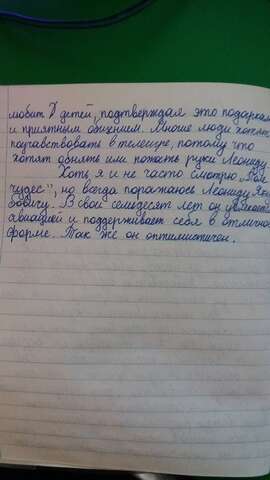 любит детей, подтверждая это подарками
и приятным общением. Многие люди хотят
поучавствовать в телеигре, потому что
хотят обнять или пожать руки Леониду.
Хоть я и не часто смотрю „Поле
чудес", но всегда поражаюсь Леониду Яку-
бовичу. В свои семьдесят лет он увлекается
авиацией и поддерживает себя в отличной
форме. Так же он оптимистичен.